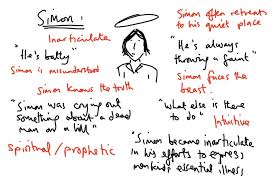 Simon:
Inarticulate
"He's batty"
Simon is misunderstood
Simon knows the truth
"Simon was crying out
something about a dead
man on a hill"
spiritual/prophetic
Simon often retreats
to his quiet place
"He's always
throwing a faint"
Simon faces the
beast.
"what else is there
to do"
Intuitive
"Simon became inarticulate
in his efforts to express
mankind's essential illness